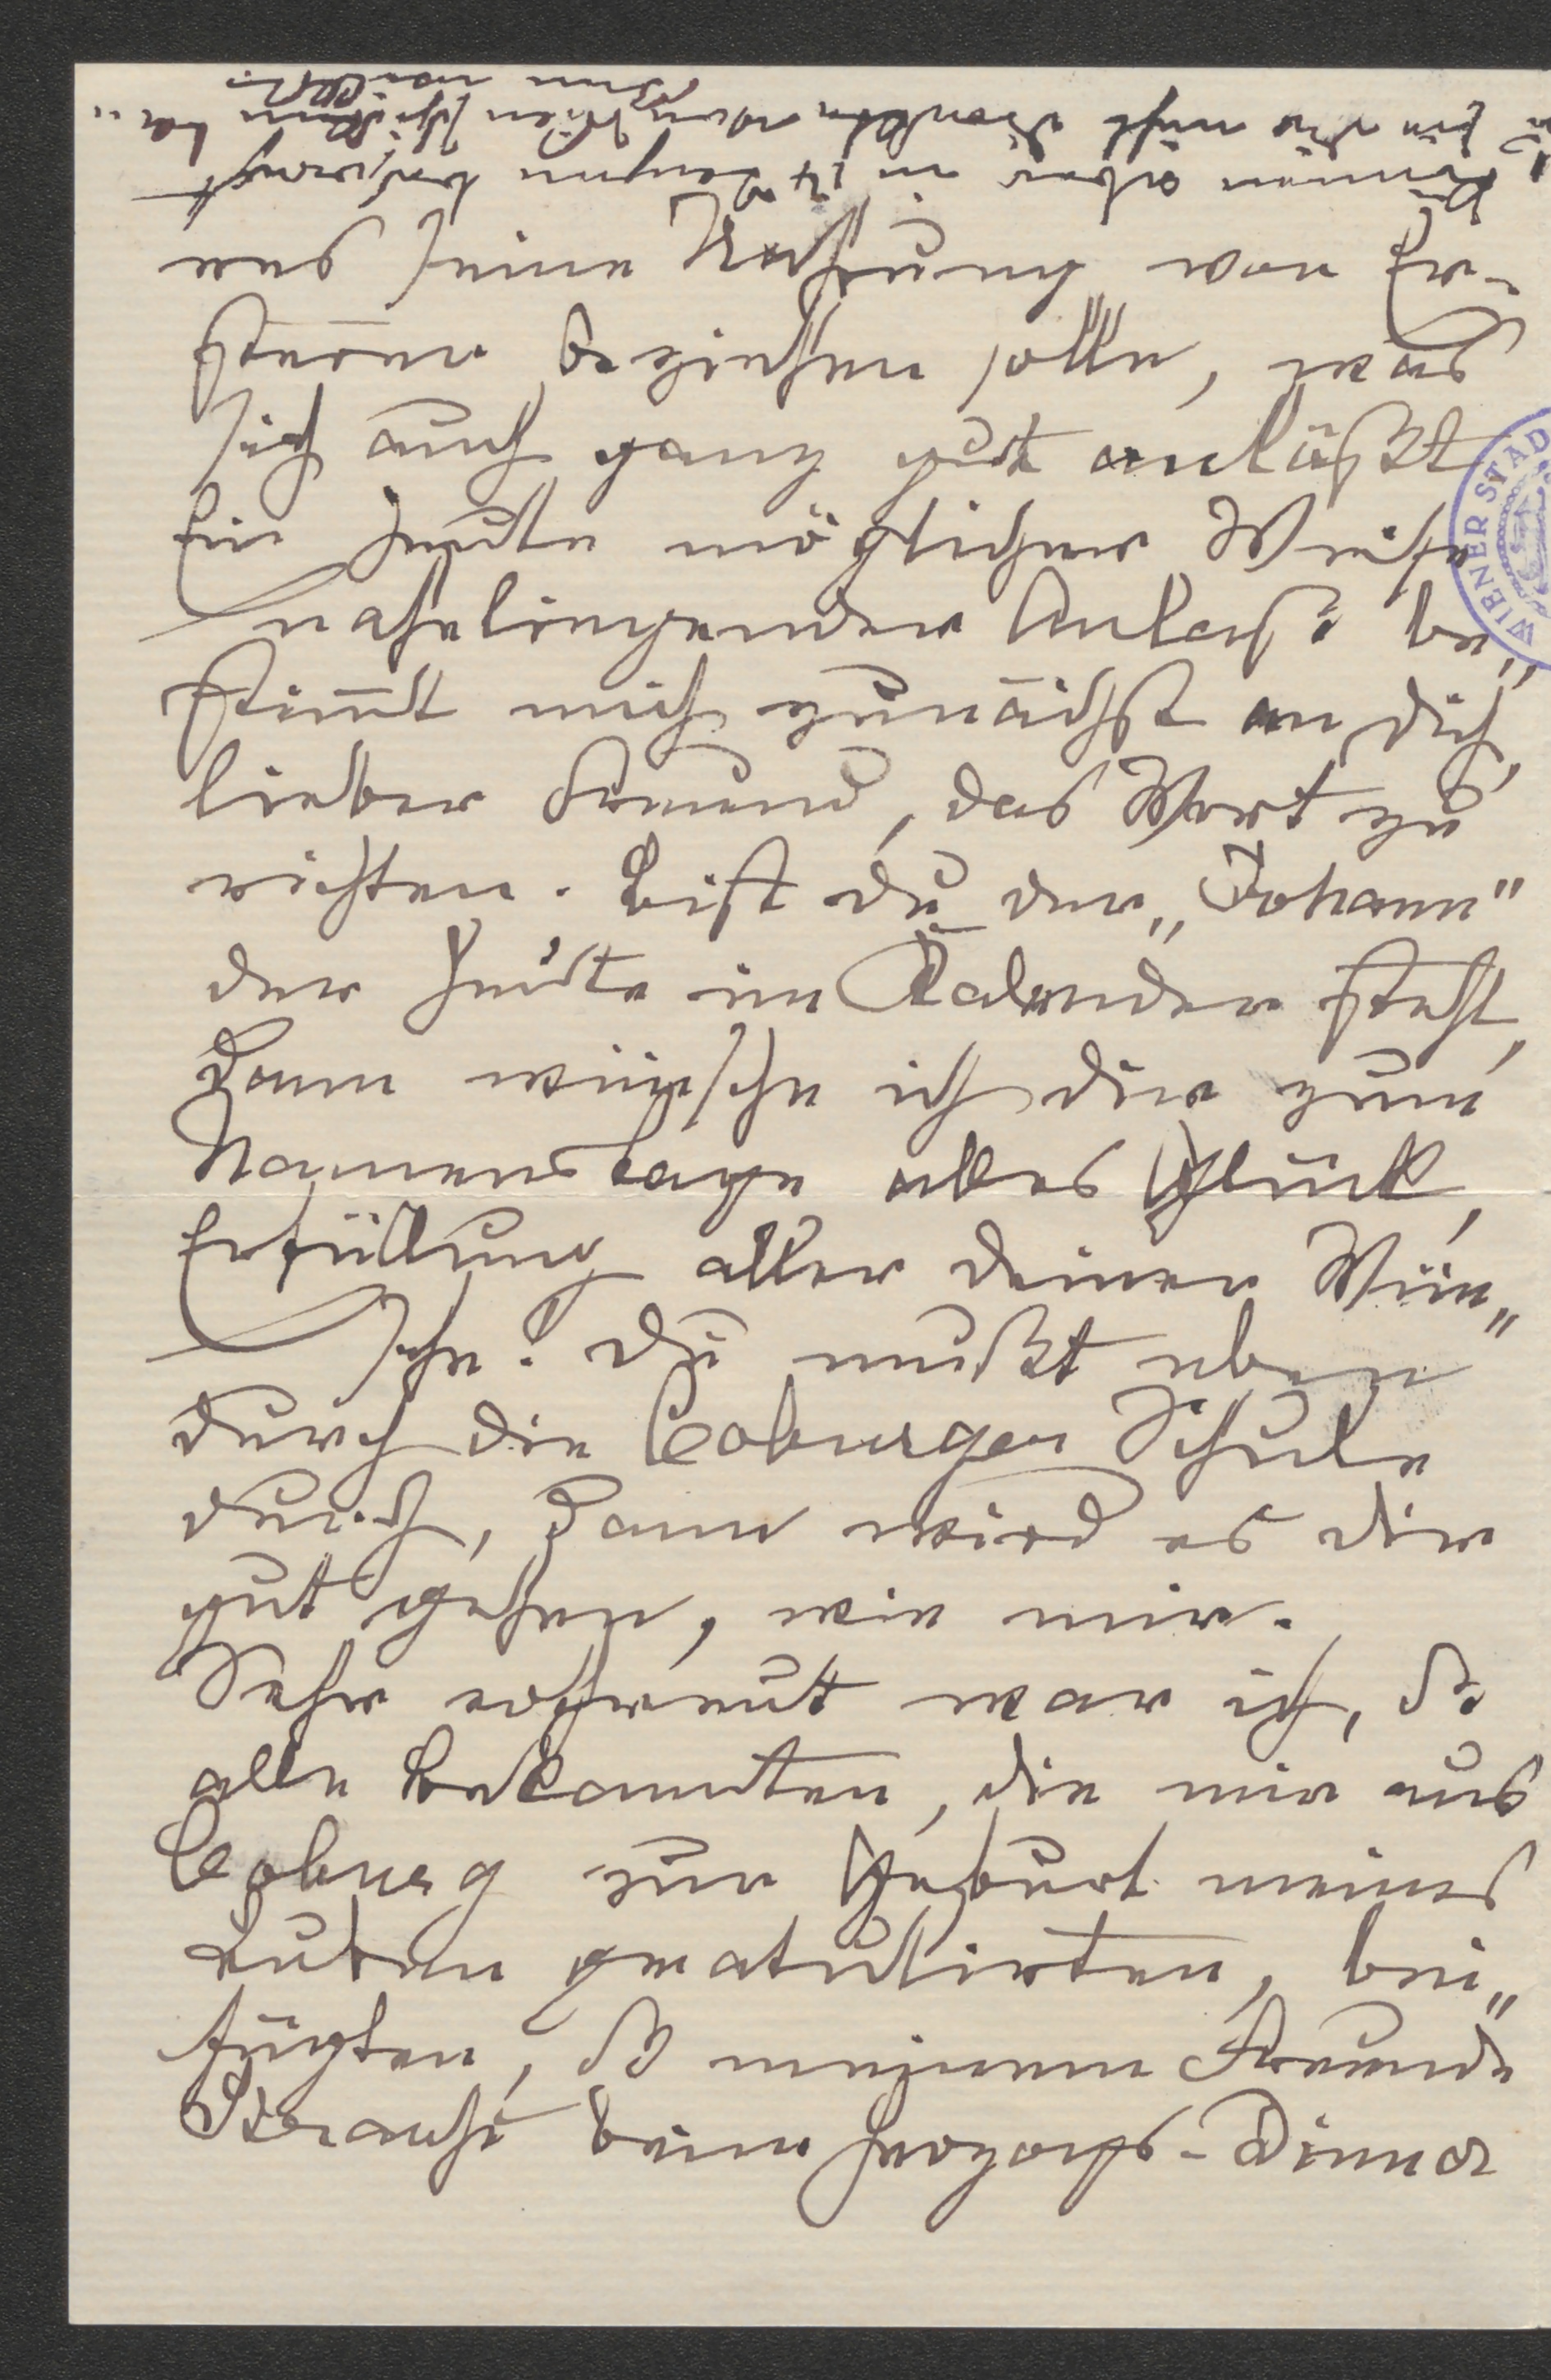 was seine Nahrung von Er-
sterer beziehen solle, was
sich auch ganz gut anläßt
Ein heute möglicher Weise
naheliegender Anlaß be„
stimmt mich zunächst an dich,
lieber Freund, das Wort zu
richten. Bist du der „Johann"
der heute im Kalender steht,
dann wünsche ich dir zum
Namenstage alles Glück,
Erfüllung aller deiner Wün„
sche! Du mußt eben
durch die Coburger Schule
durch, dann wird es dir
gut gehen, wie mir.
Sehr erfreut war ich, ds
alle Bekannten, die mir aus
Coburg zur Geburt meines
Buben gratulirten, bei„
fügten, ds meinem Freunde
Strauß beim Herzogs-Diner
können aber in 14 Tagen
für die nicht schicken
WIENER STAD